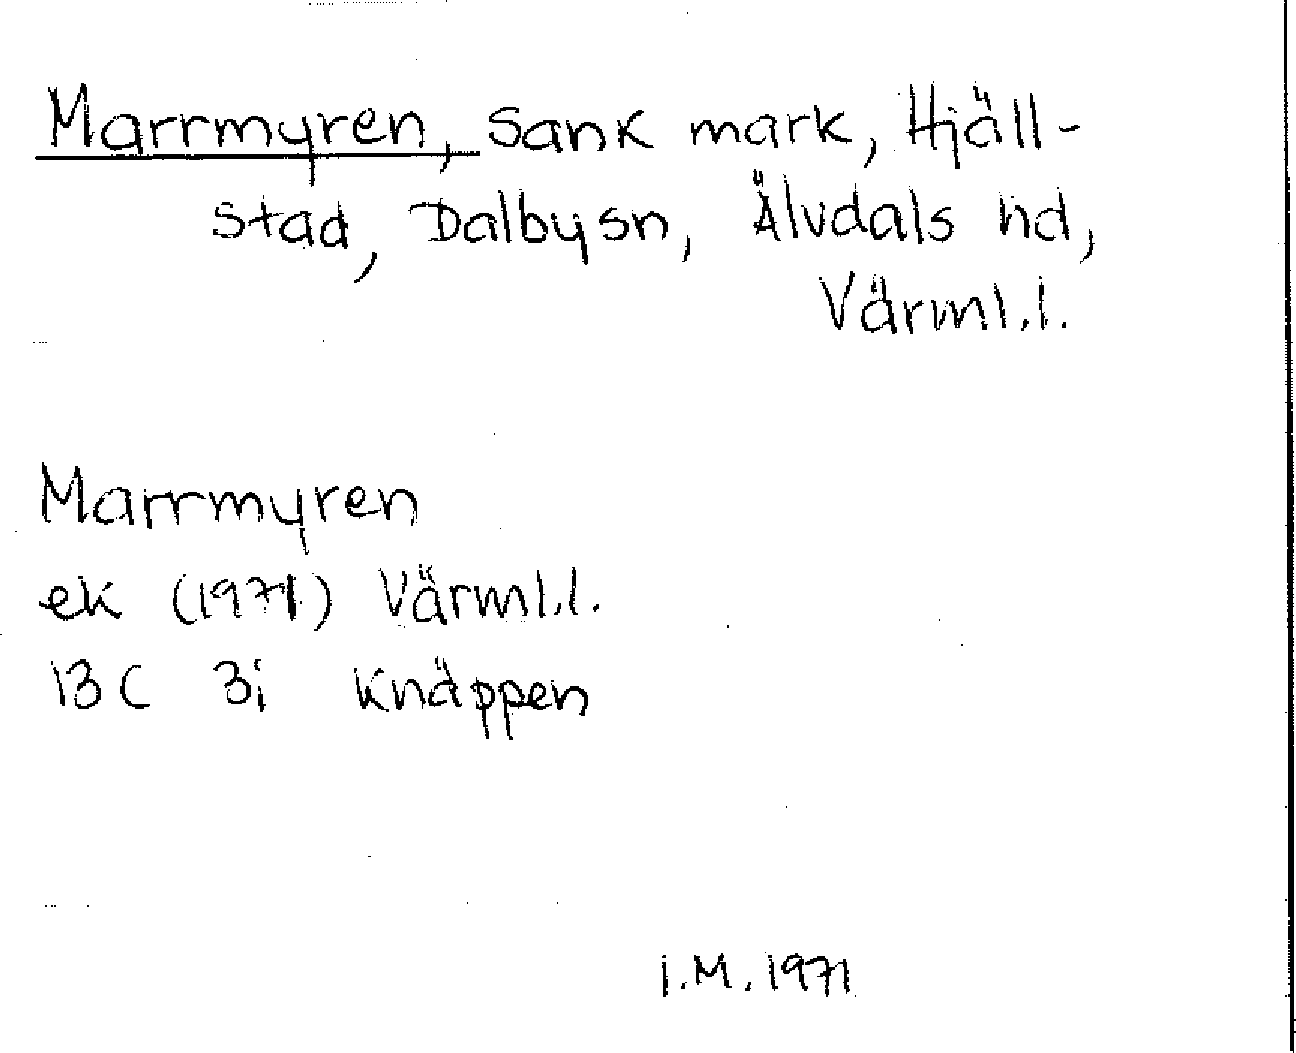 Marrmyren, sank mark, Hjäll-
stad, Dalby sn, Älvdals hd,
Värml.l.
Marrmyren
ek (1971) Värml.l.
13 C 3i Knäppen
I.M. 1971